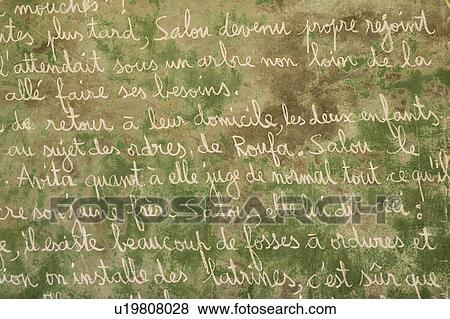 mouches ?
ntes plus tard, Salou devenu propre rejoint
l'attendait sous un arbre non loin de la
allé faire ses besoins.
de retour à leur domicile, les deux enfants
au sujet des ordres, de Roufa. Salou le
Avita quant à elle juge de normal tout ce qu'il
FOTOSEARCH®
e, il existe beaucoup de fosses à ordures et
ion on installe des latrines, c'est sûr que
u19808028 www.fotosearch.com